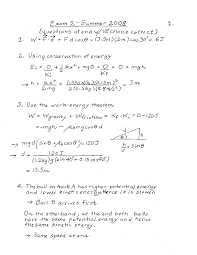 Exam 2 - Summer 2008 1.
(questions at end w/ choice correct)
1. W = F⃗·d⃗ = F d cosθ = (3.5N)(2m) cos 30° = 6J
2. Using conservation of energy
E_i = 0 + ½kx² + mg0 = 0 + 0 + mgh
K_i
→ h = kx² / 2mg = = 3m
3. Use the work-energy theorem:
W = W_gravity + W_friction = K_f - K_i = 0 - 120J
= -mgh - f_k mg cosθ d
→ mgd (sinθ + μ_k cosθ) = 120J
h/d = sinθ
→ d = 120J / (1.2kg)g(sin40° + 0.15cos40°)
= 13.5m
4. The ball on track A has higher potential energy
and lower kinetic energy, hence it is slower
→ Ball B arrives first.
On the other hand, at the end both balls
have the same potential energy and hence
the same kinetic energy.
→ Same speed at end.